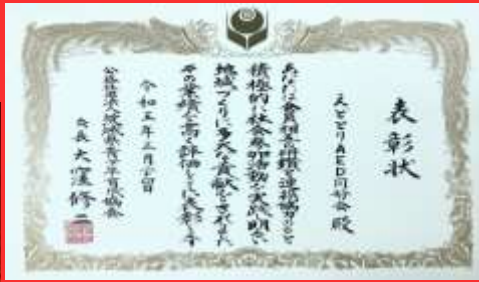 表彰状
えととりAED同好会 殿
あなたは会員相互の相携と連絡協力のもと
積極的に社会参加活動を実践し明るい
地域づくりに多大な貢献をされました
その業績を高く評価しここに表彰します
令和五年三月
公益社団法人茨城県青少年育成協会
会長 大窪修二